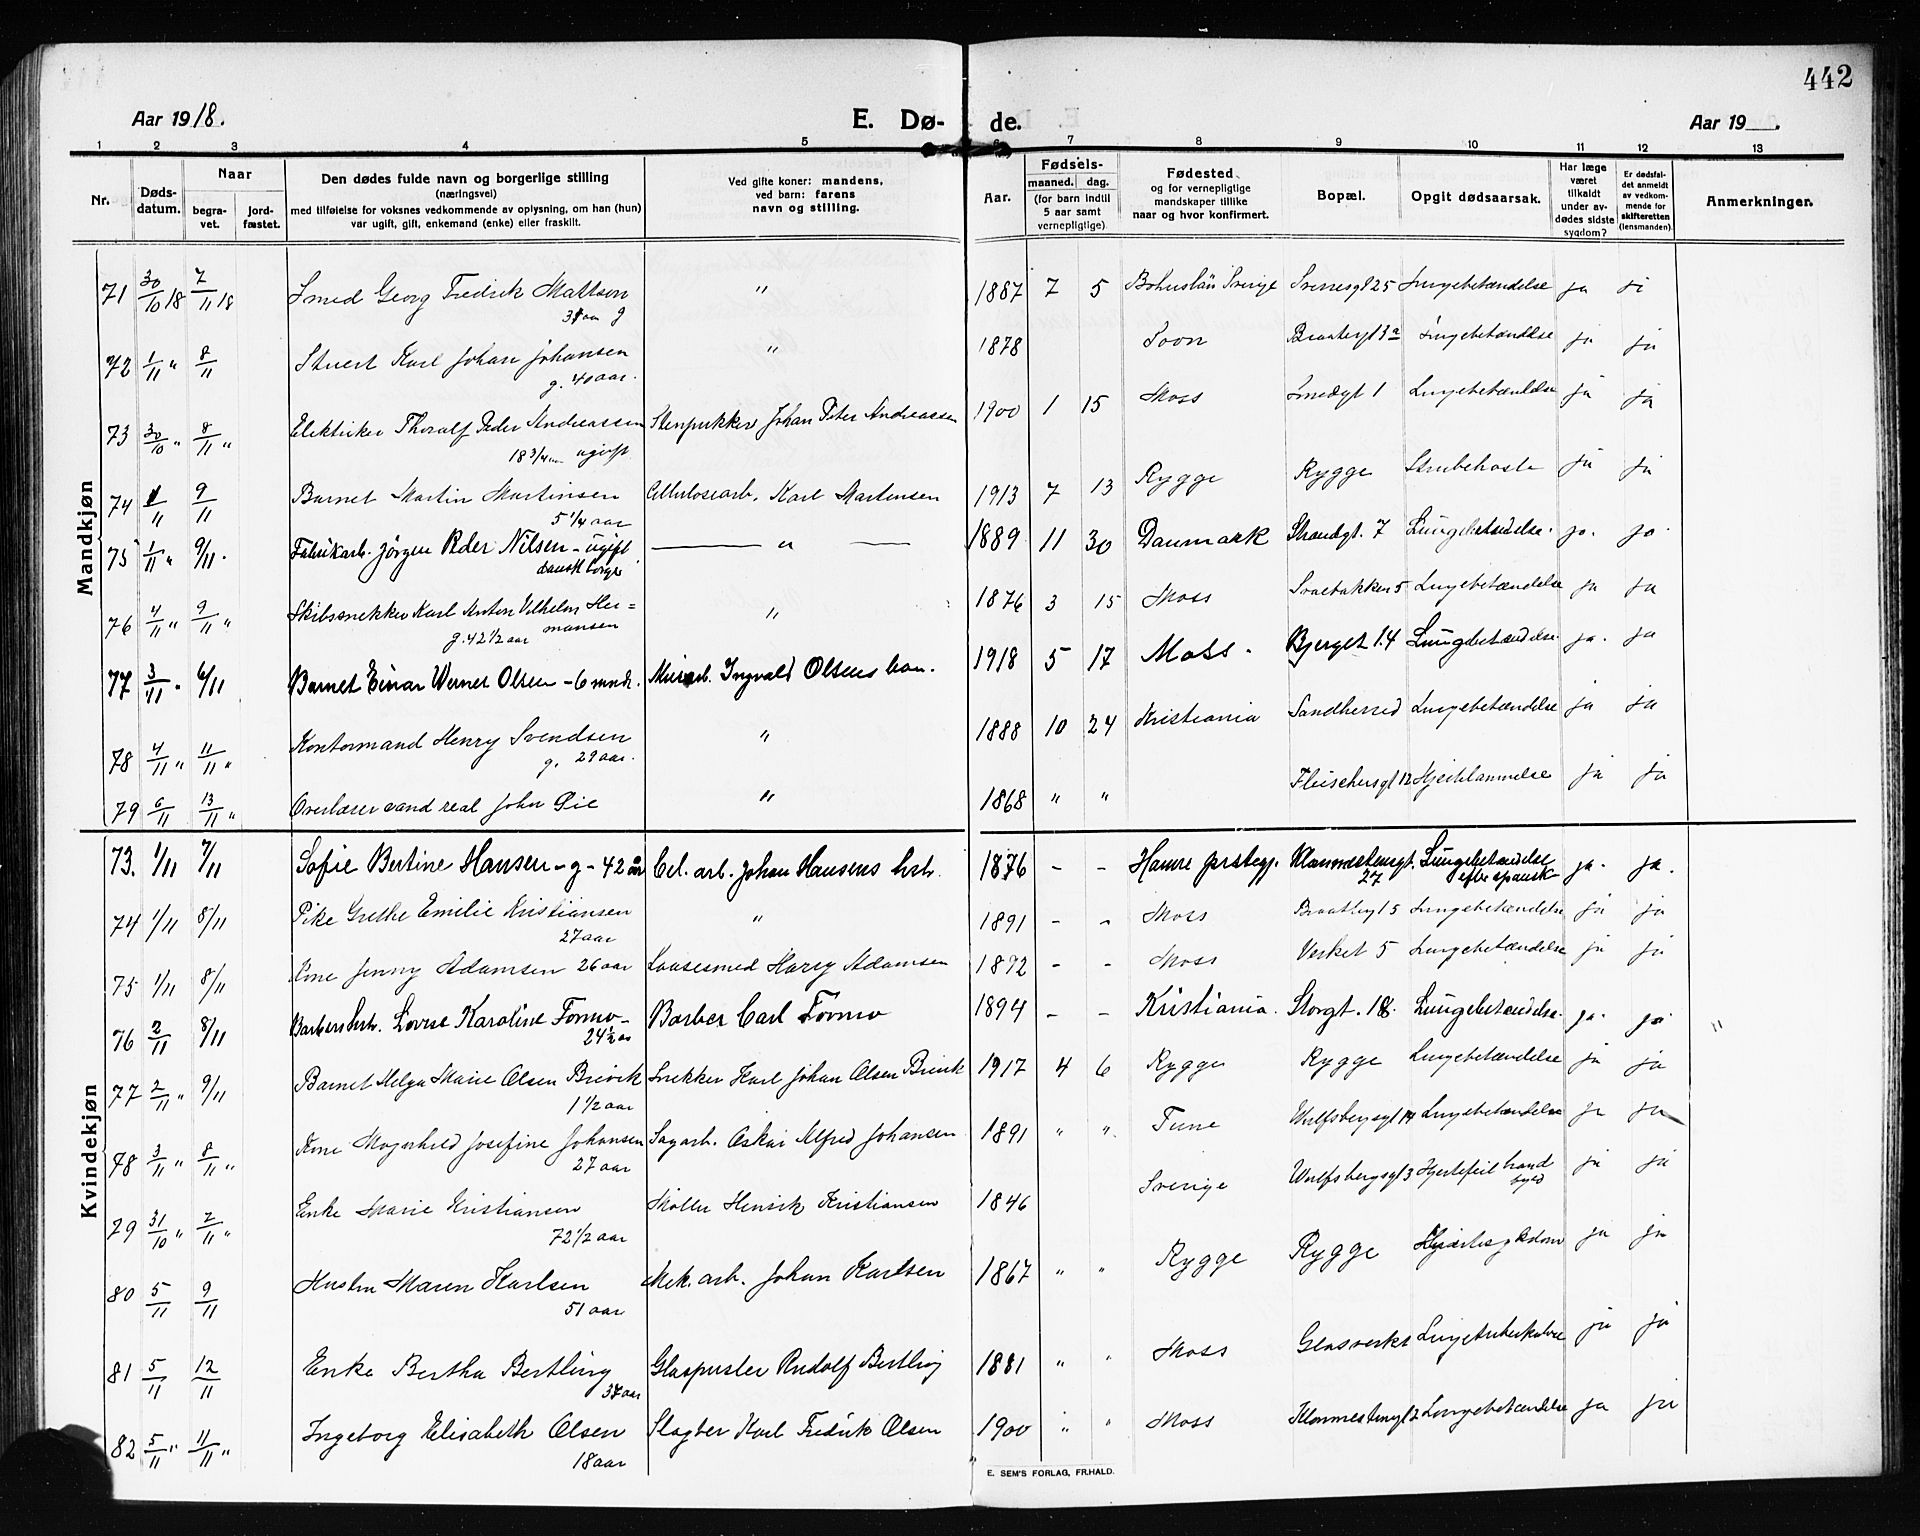 442
Aar 1918. E. Dø- de. Aar 19 .
1 2 3 4 5 6 7 8 9 10 11 12 13
Nr.
Døds-
datum.
Naar
begra-
vet.
jord-
fæstet.
Den dødes fulde navn og borgerlige stilling
(næringsvei)
med tilføielse for voksnes vedkommende av oplysning, om han (hun)
var ugift, gift, enkemand (enke) eller fraskilt.
Ved gifte koner: mandens,
ved barn: farens
navn og stilling.
Aar.
Fødsels-
maaned. dag.
(for barn indtil
5 aar samt
vernepligtige)
Fødested
og for vernepligtige
mandskaper tillike
naar og hvor konfirmert.
Bopæl.
Opgit dødsaarsak.
Har læge
været
tilkaldt
under av-
dødes sidste
sygdom?
Er dødsfal-
det anmeldt
av vedkom-
mende for
skifteretten
(lensmanden).
Anmerkninger.
Mandkjøn
71 30/10 18 7/11 18 Smed Georg Fredrik Mattson " 1887 7 5 Bohuslän Sverige Sverresgt 25 Lungebetændelse ja ja
31 aar g
72 1/11 " 8/11 Stuert Karl Johan Johansen " 1878 Soon 3a Lungebetændelse ja ja
g. 40 aar.
73 30/10 " 8/11 " Elektriker Thoralf Peder Andreassen Stenpukker Johan Peter Andreassen 1900 1 15 Moss Smedgt 1 Lungebetændelse ja ja
18 3/4 aar ugift
74 1/11 9/11 Barnet Martin Martinsen Cellulosearb. Karl Martensen 1913 7 13 Rygge Rygge Strubehoste ja ja
5 1/4 aar
75 1/11 " 9/11. Fabrikarb. Jørgen Peder Nilsen - ugift — " — 1889 11 30 Danmark Strandgt. 7 Lungebetændelse. ja. ja.
dansk borger
76 4/11 " 9/11 " Skibssnekker Karl Anton Vilhelm Her= " 1876 3 15 Moss 5 Lungebetændelse ja ja
g. 42 1/2 aar mansen
77 3/11 " 6/11 Barnet Einar Werner Olsen - 6 mndr. Murarb. Ingvald Olsens barn. 1918 5 17 Moss. Bjerget 14 Lungebetændelse. ja. ja
78 4/11 " 11/11 " Kontormand Henry Svendsen " 1888 10 24 Kristiania Sandherred Lungebetændelse ja ja
g. 29 aar.
79 6/11 13/11 " Overlærer cand real John Lie " 1868 " " Fleischersgt 12 Hjertelammelse ja ja
Kvindekjøn
73. 1/11 7/11 Sofie Bertine Hansen - g - 42 år Cel. arb. Johan Hansens hstr. 1876 - - Hamre prstegj. Klommestengt. 27 Lungebetændelse efter spansk ja. ja.
74 1/11 8/11 Pike Grethe Emilie Kristiansen " 1891 - - Moss 5 Lungebetændelse ja ja
27 aar
75 1/11 8/11 Kone Jenny Adamsen 26 aar Laasesmed Harry Adamsen 1892 - - Moss Verket 5 Lungebetændelse ja ja
76 2/11 8/11 Barbershstr. Lovise Karoline Formo - Barber Carl Formo 1894 - - Kristiania. Storgt. 18. Lungebetændelse. ja. ja "
24 1/2 aar
77 2/11 " 9/11 Barnet Helga Marie Olsen Brevik Snekker Karl Johan Olsen Brevik 1917 4 6 Rygge Rygge Lungebetændelse ja ja
1 1/2 aar
78 3/11 " 8/11 " Kone Magnhild Josefine Johansen Sagarb. Oskar Alfred Johansen 1891 " " Tune Wulfsbergsgt 14 Lungebetændelse ja ja
27 aar
79 31/10 " 7/11 " Enke Marie Kristiansen Møller Henrik Kristiansen 1846 Sverige Wulfsbergsgt 3 Hjertefeil ja ja
72 1/2 aar
80 5/11 9/11 Hustru Maren Karlsen Mek. arb. Johan Karlsen 1867 " " Rygge Rygge Hjertesykdom ja ja
51 aar
81 5/11 12/11 Enke Bertha Bertling Glaspuster Rudolf Bertling 1881 " " Moss Glasverket Lungetuberkulose ja ja
37 aar
82 5/11 " 11/11 " Ingeborg Elisabeth Olsen Slagter Karl Fredrik Olsen 1900 " " Moss Klommestengt 2 Lungebetændelse ja ja
18 aar
E. SEM'S FORLAG, FR.HALD.